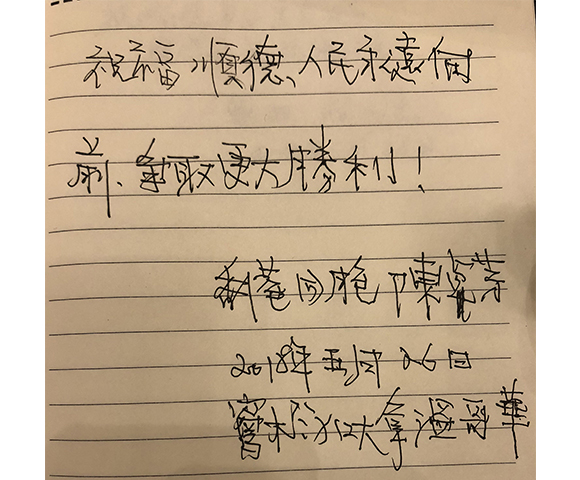 祝福順德人民永遠向
前、爭取更大勝利!
同胞 陳
2018年五月26日
加拿大溫哥華